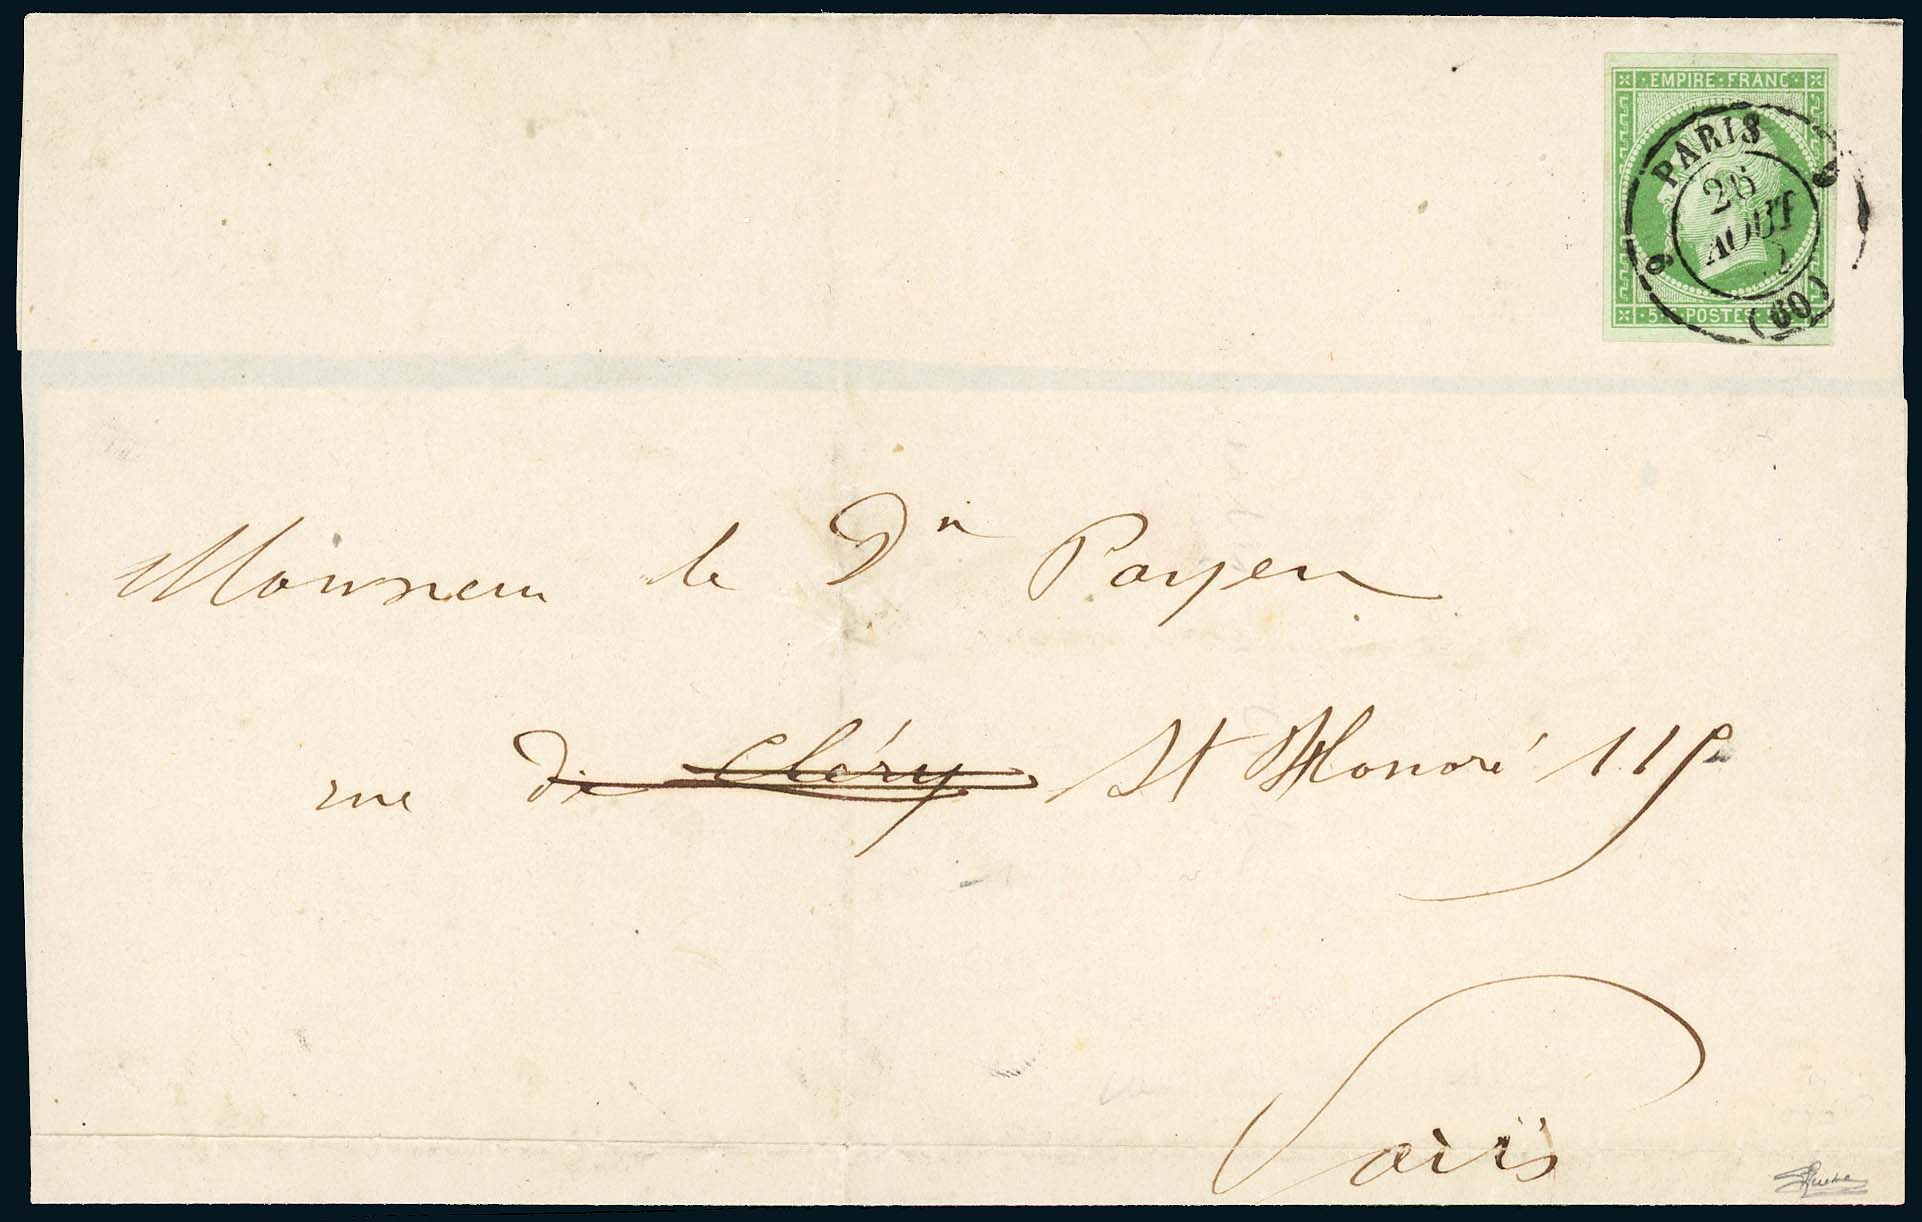 EMPIRE · FRANC ·
PARIS
AOUT
(60)
· 5 · POSTES · 5
Monsieur le Dr Payen
rue de Cléry St Honoré 115
Paris